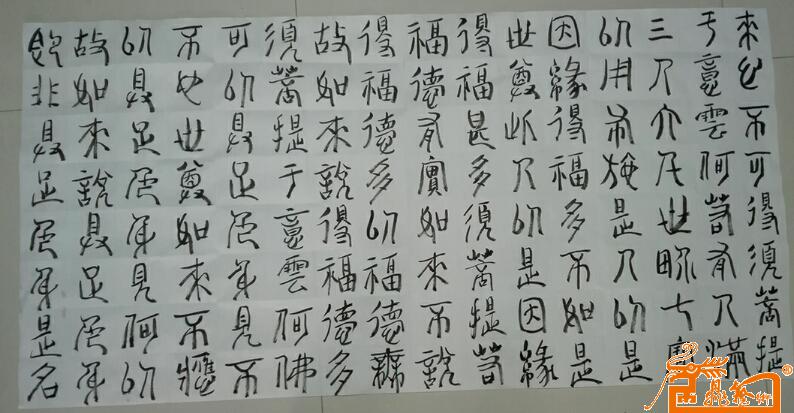 來心不可得須菩提
于意雲何若有人滿
三千大千世界七寶
以用布施是人以是
因緣得福多不如是
世尊此人以是因緣
得福甚多須菩提若
福德有實如來不說
得福德多以福德無
故如來說得福德多
須菩提于意雲何佛
可以具足色身見不
不也世尊如來不應
以具足色身見何以
故如來說具足色身
即非具足色身是名